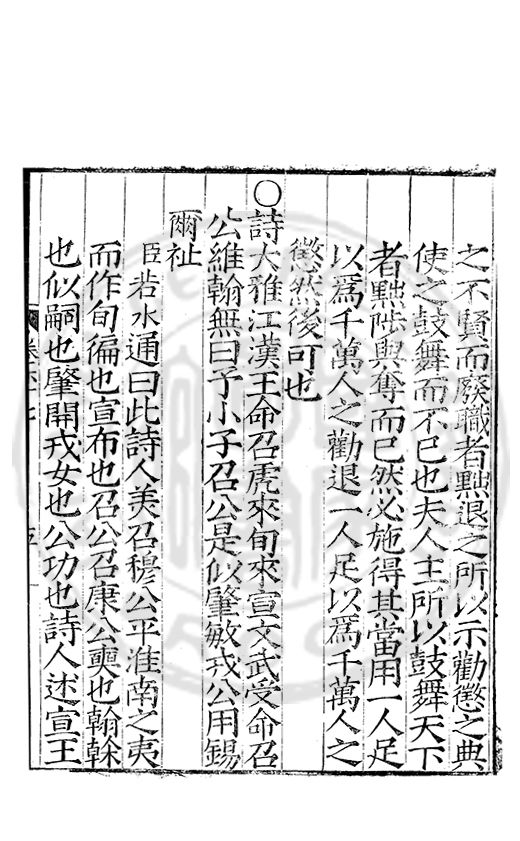 之不賢而廢職者黜退之所以示勸懲之典
使之鼓舞而不已也夫人主所以鼓舞天下
者黜陟與奪而已然必施得其當用一人足
以爲千萬人之勸退一人足以爲千萬人之
懲然後可也
○詩大雅江漢王命召虎來旬來宣文武受命召
公維翰無曰予小子召公是似肇敏戎公用錫
爾祉
臣若水通曰此詩人美召穆公平淮南之夷
而作旬徧也宣布也召公召康公奭也翰榦
也似嗣也肇開戎女也公功也詩人述宣王